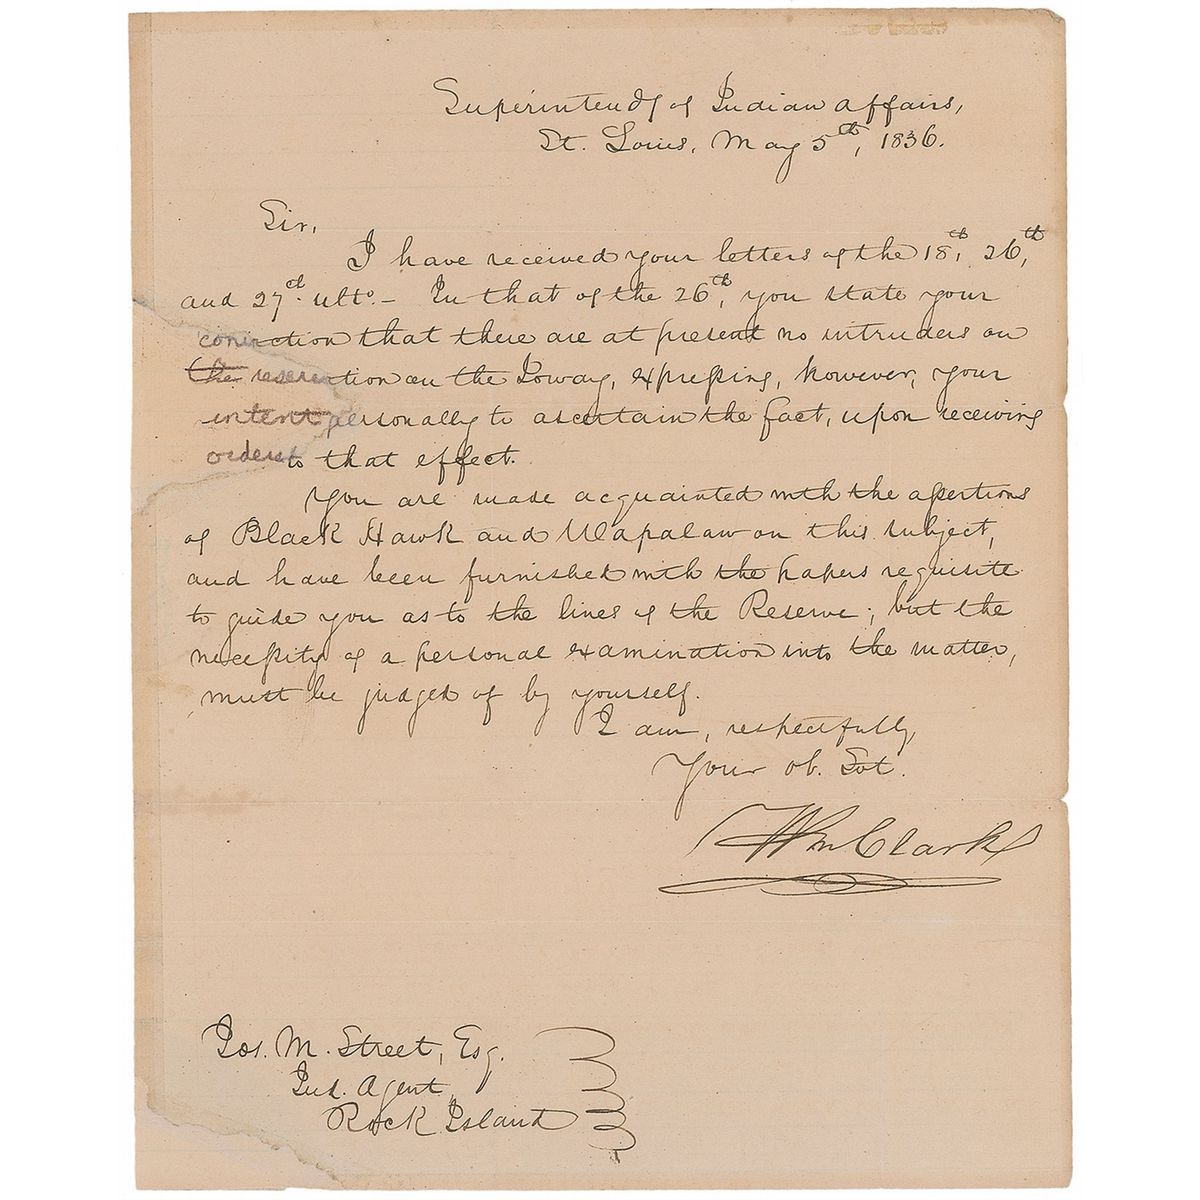 Superintendy of Indian Affairs,
St. Louis, May 5th, 1836.
Sir,
I have received your letters of the 18th, 26th,
and 27th ulto. – In that of the 26th, you state your
conviction that there are at present no intruders on
the reservation on the Ioway, expressing, however, your
intent personally to ascertain the fact, upon receiving
orders to that effect.
You are made acquainted with the assertions
of Black Hawk and Wapalaw on this subject,
and have been furnished with the papers requisite
to guide you as to the lines of the Reserve; but the
necessity of a personal examination into the matter,
must be judged of by yourself.
I am, respectfully
Your ob. Svt.
Wm Clark
Jos. M. Street, Esq.
Ind. Agent
Rock Island